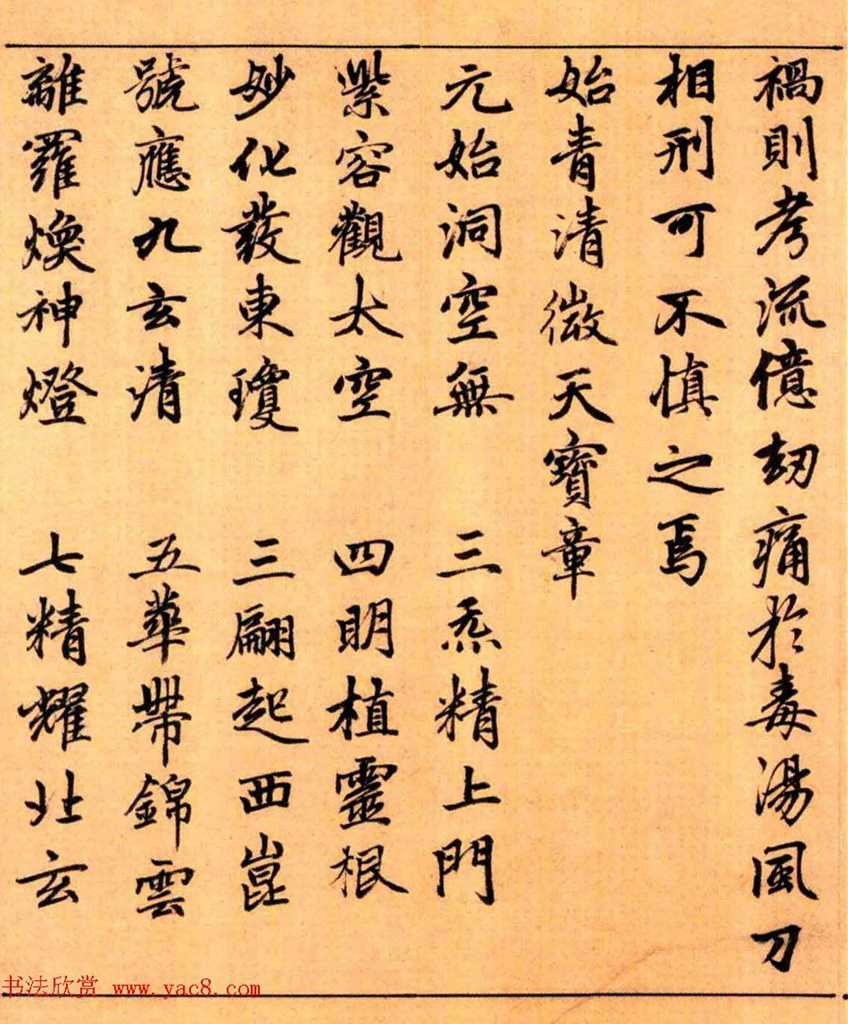 禍則考流億劫痛於毒湯風刀
相刑可不慎之焉
始青清微天寶章
元始洞空無 三炁精上門
紫容觀太空 四明植靈根
妙化發東瓊 三翩起西崑
號應九玄清 五華帶錦雲
離羅煥神燈 七精耀北玄
书法欣赏 www.yac8.com